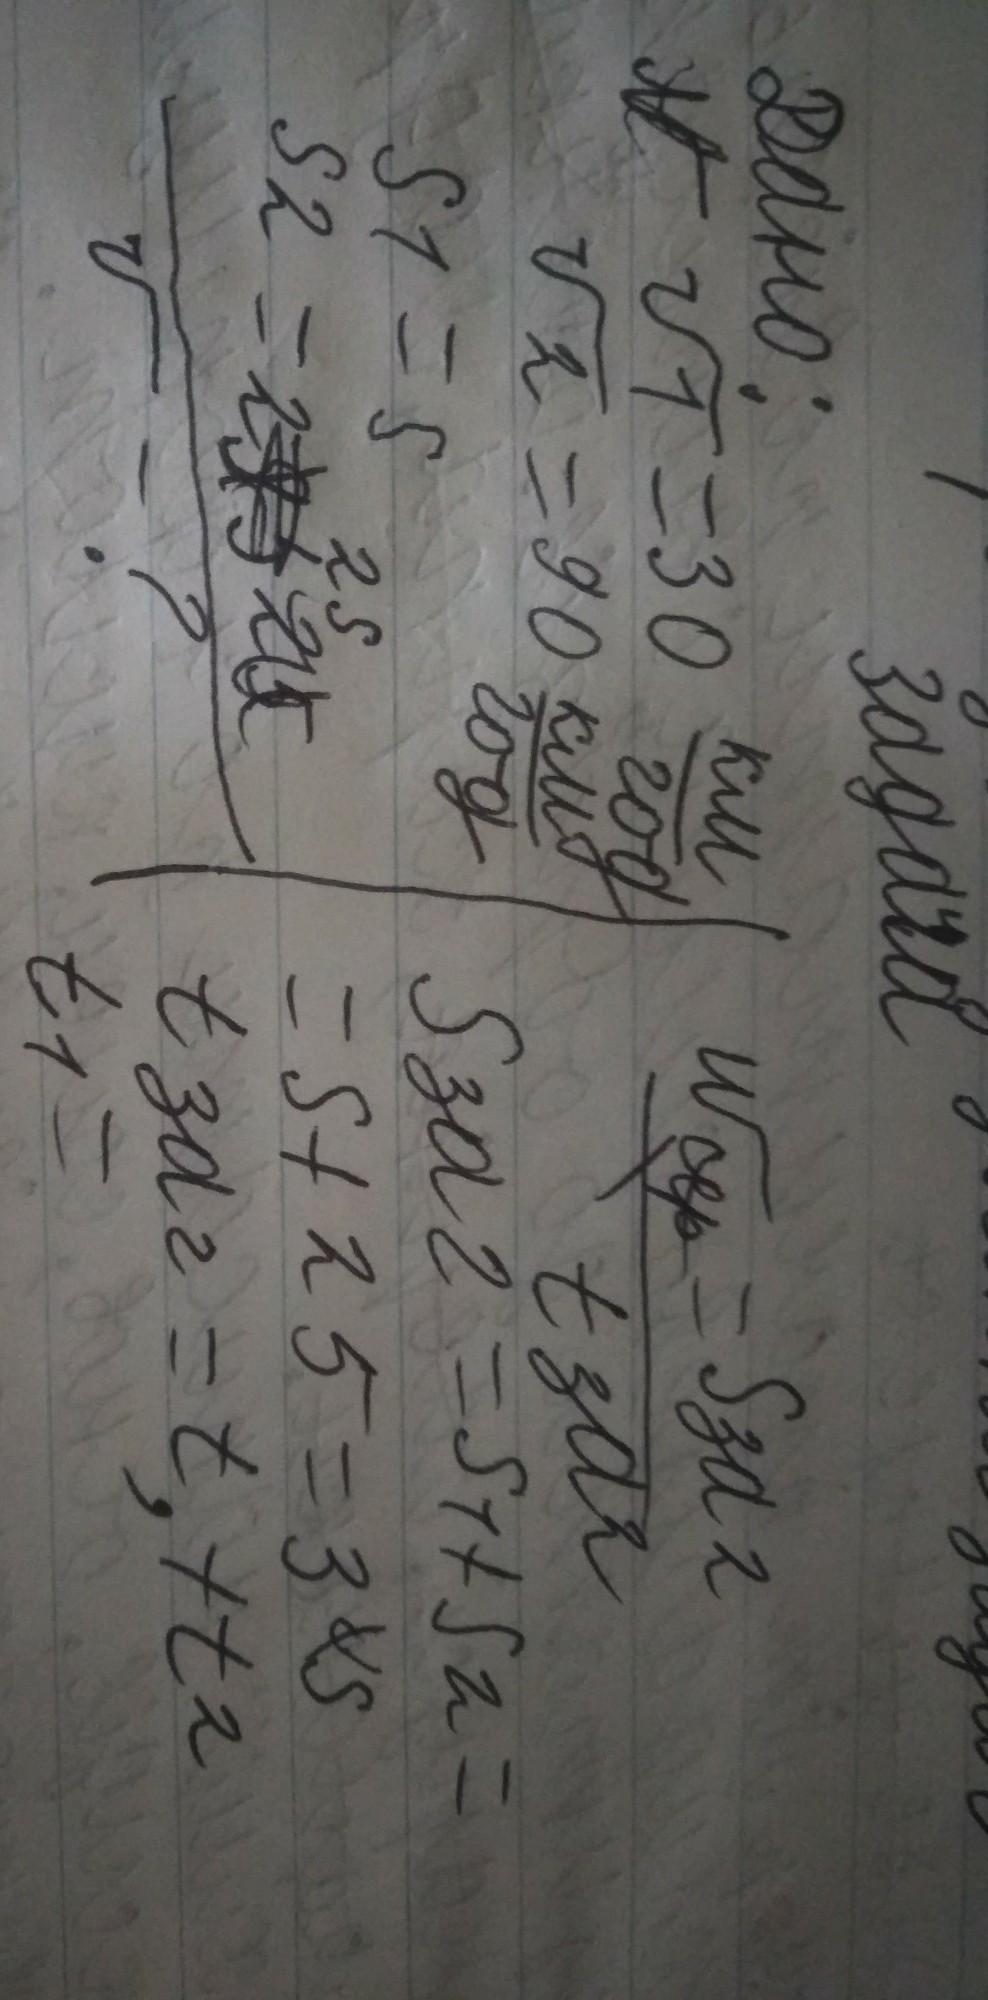 Задача
Дано:
v1 = 30 км/год
v2 = 90 км/год
S1 = S
S2 = 2S
v = ?
vср = Sзаг / tзаг
Sзаг = S1 + S2 =
= S + 2S = 3S
tзаг = t1 + t2
t1 =